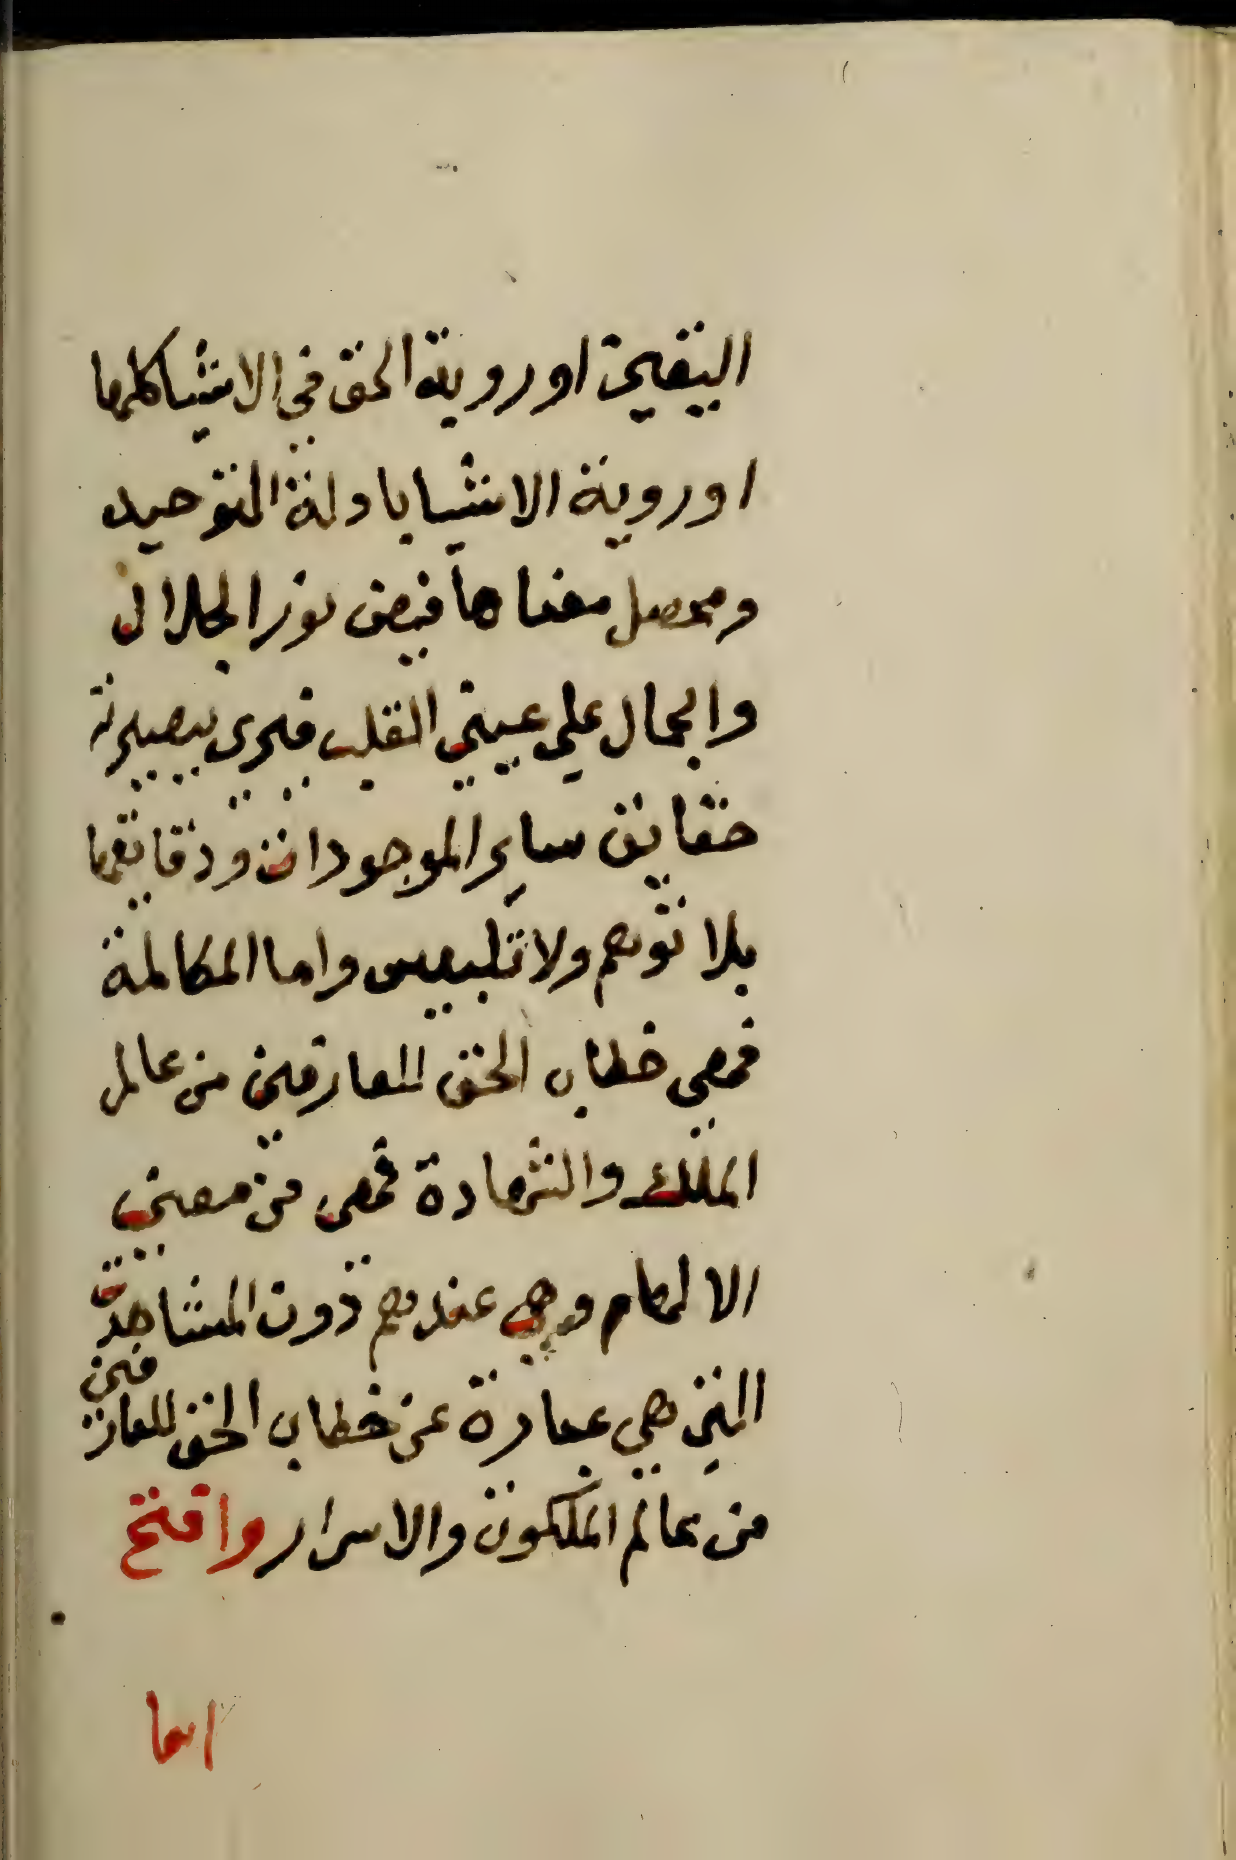 اليقين او روية الحق في الاشيا كلها
او روية الاشيا بادلة التوحيد
ومحصل معناها فيض نور الجلال
والجمال على عيني القلب فيرى ببصيرته
حقايق ساير الموجودات ودقايقها
بلا توهم ولا تلبيس واما المكالمة
فهي خطاب الحق للعارفين من عالم
الملك والشهادة فهي من معنى
الالهام وهي عندهم دون المشاهدة
التي هي عبارة عن خطاب الحق للعارفين
من عالم الملكوت والاسرار وافتح